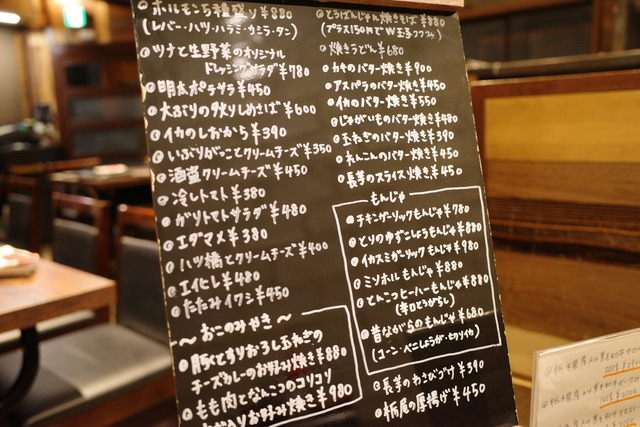 ◎ホルモン5種盛り¥880
(レバー・ハツ・ハラミ・カシラ・タン)
◎ツナと生野菜のオリジナル
ドレッシングサラダ¥780
◎明太ポテサラ¥450
◎大ぶりの炙りしめさば¥600
◎イカのしおから¥390
◎いぶりがっことクリームチーズ¥350
◎酒盗クリームチーズ¥450
◎冷しトマト¥380
◎ガリトマトサラダ¥480
◎エダマメ¥380
◎八ツ橋とクリームチーズ¥400
◎エイヒレ¥480
◎たたみイワシ¥450
〜おこのみやき〜
◎豚とすりおろし玉ねぎの
チーズカレーのお好み焼き¥880
◎もも肉となんこつのコリコリ
お好み焼き¥980
焼きそば¥880
(プラス150円で W玉子
◎焼きうどん¥680
◎カキのバター焼き¥900
◎アスパラのバター焼き¥450
◎イカのバター焼き¥550
◎じゃがいものバター焼き¥480
◎玉ねぎのバター焼き¥390
◎れんこんのバター焼き¥450
◎長芋のスライス焼き¥450
もんじゃ
◎チキンガーリックもんじゃ¥780
◎とりのゆずこしょうもんじゃ¥880
◎イカスミガーリックもんじゃ¥980
◎ミソホルもんじゃ¥880
◎とんこつヒーハーもんじゃ¥880
(辛とうがらし)
◎昔ながらのもんじゃ¥680
(コーン・ベニしょうが・切りイカ)
◎長芋のわさびづけ¥390
◎栃尾の厚揚げ¥450